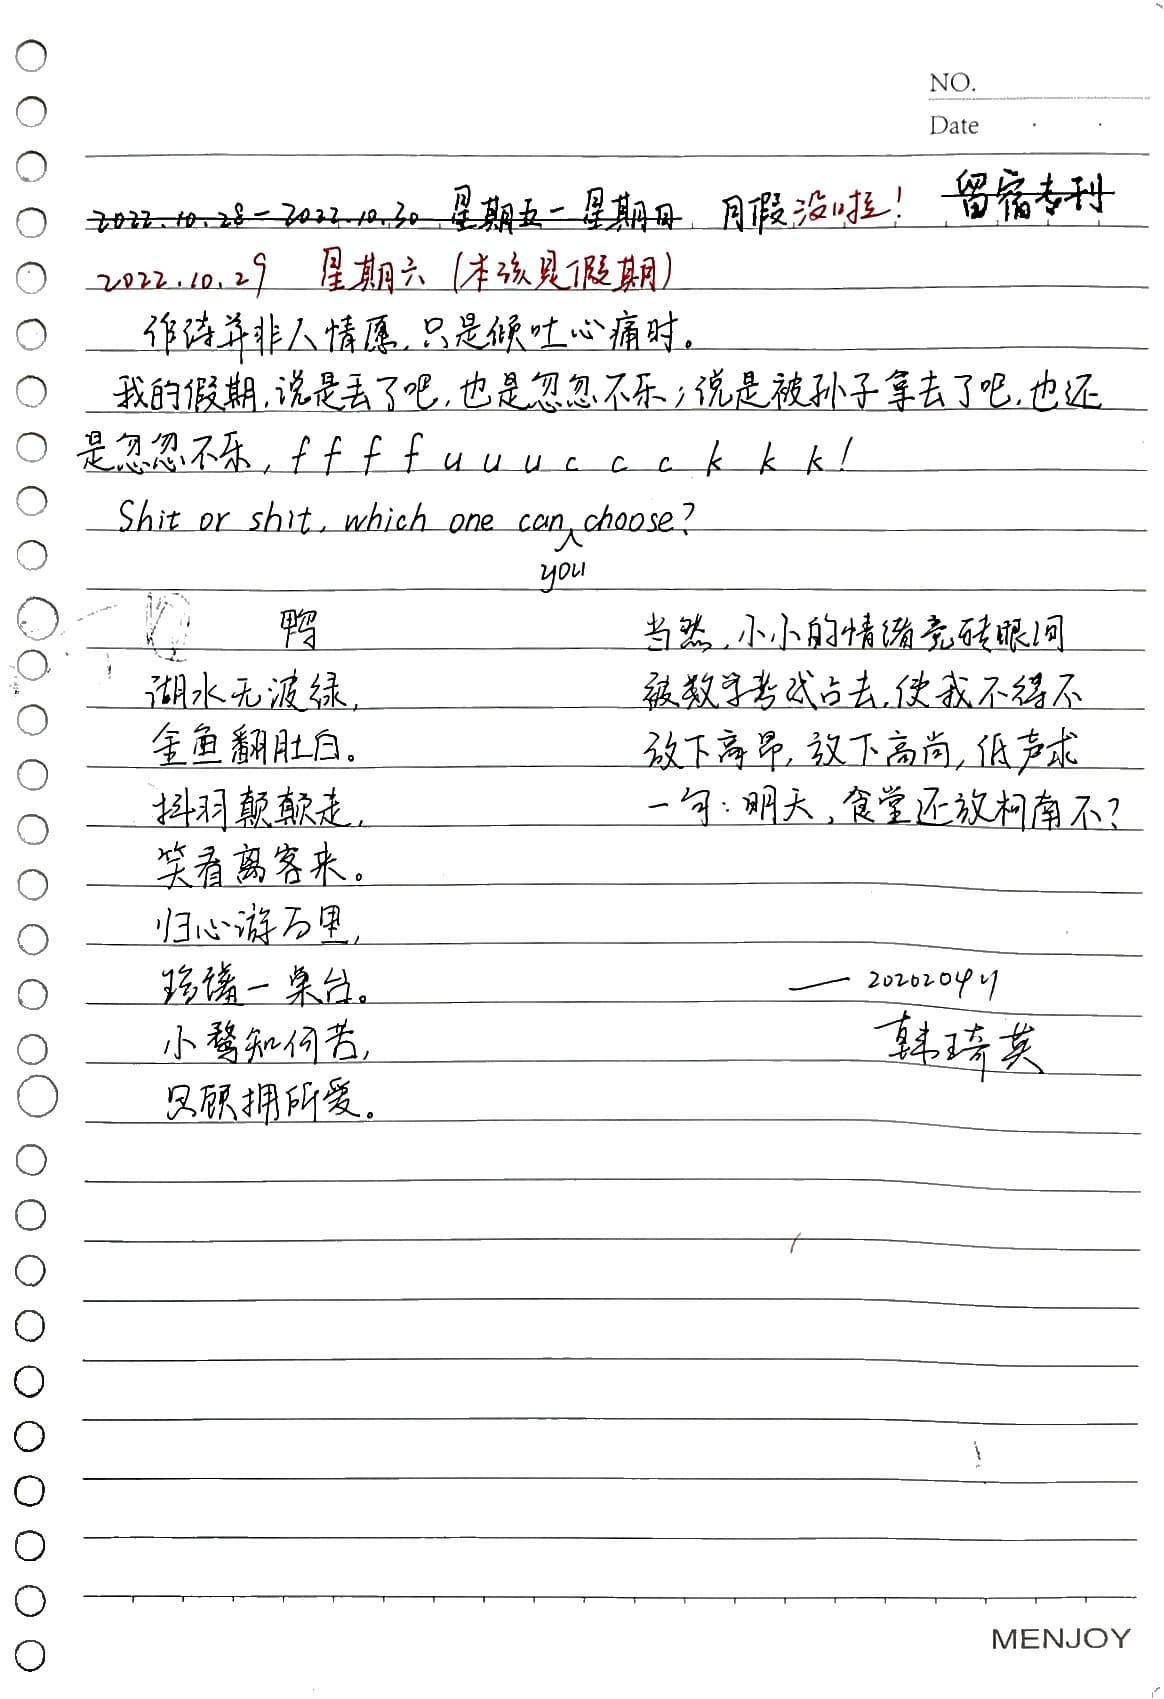 NO.
Date
2022.10.28-2022.10.30 星期五-星期日 月假没啦! 留宿专刊
2022.10.29 星期六(本该是假期)
作诗并非人情愿,只是倾吐心痛时。
我的假期,说是丢了吧,也是忽忽不乐;说是被孙子拿去了吧,也还
是忽忽不乐,f f f f u u u c c c k k k!
Shit or shit, which one can choose?
you
鸭
湖水无波绿,
金鱼翻肚白。
抖羽颠颠走,
笑看离客来。
归心游万里,
一桌台。
小鹜知何苦,
只顾拥所爱。
当然,小小的情绪竟砖眼间
被数学考试占去,使我不得不
放下高昂,放下高尚,低声求
一句:明天,食堂还放柯南不?
——2020204
韩琦英
MENJOY